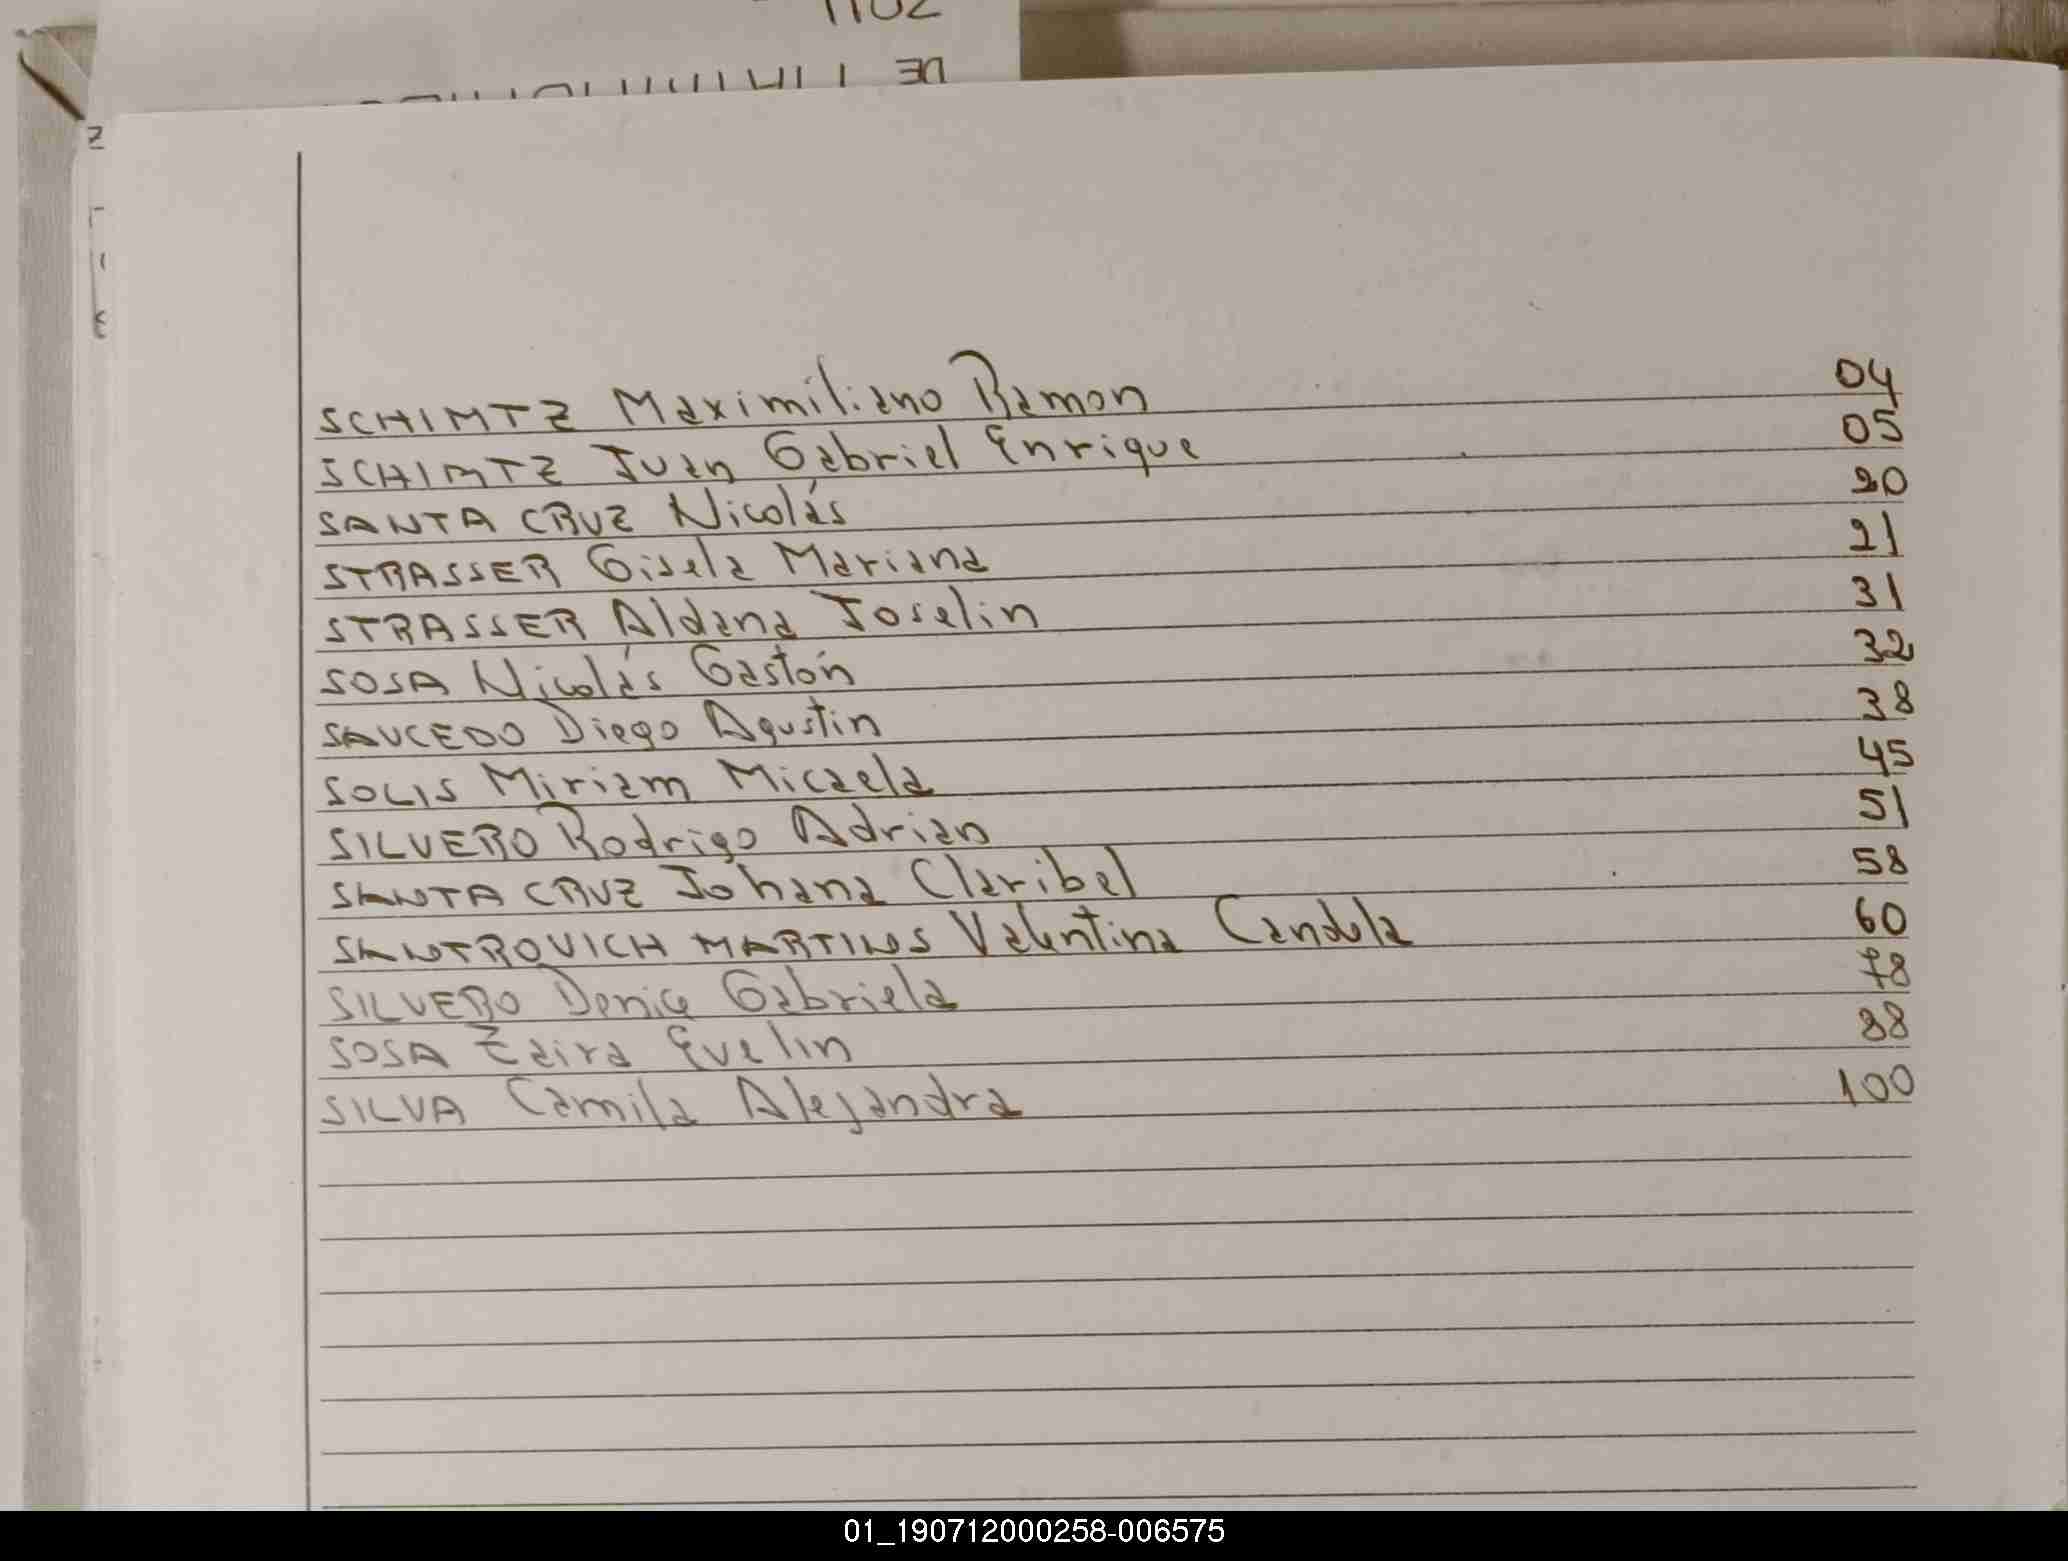 SCHIMTZ Maximiliano Ramon 04
SCHIMTZ Juan Gabriel Enrique 05
SANTA CRUZ Nicolás 20
STRASSER Gisela Mariana 21
STRASSER Aldana Joselin 31
SOSA Nicolás Gastón 32
SAUCEDO Diego Agustin 38
SOLIS Miriam Micaela 45
SILVERO Rodrigo Adrian 51
SANTA CRUZ Johana Claribel 58
SANTROVICH MARTINS Valentina Candela 60
SILVERO Denice Gabriela 78
SOSA Zaira Evelin 88
SILVA Camila Alejandra 100
01_190712000258-006575